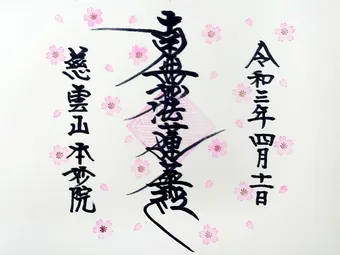 令和三年四月十一日
南無妙法蓮華経
慈雲山本妙院